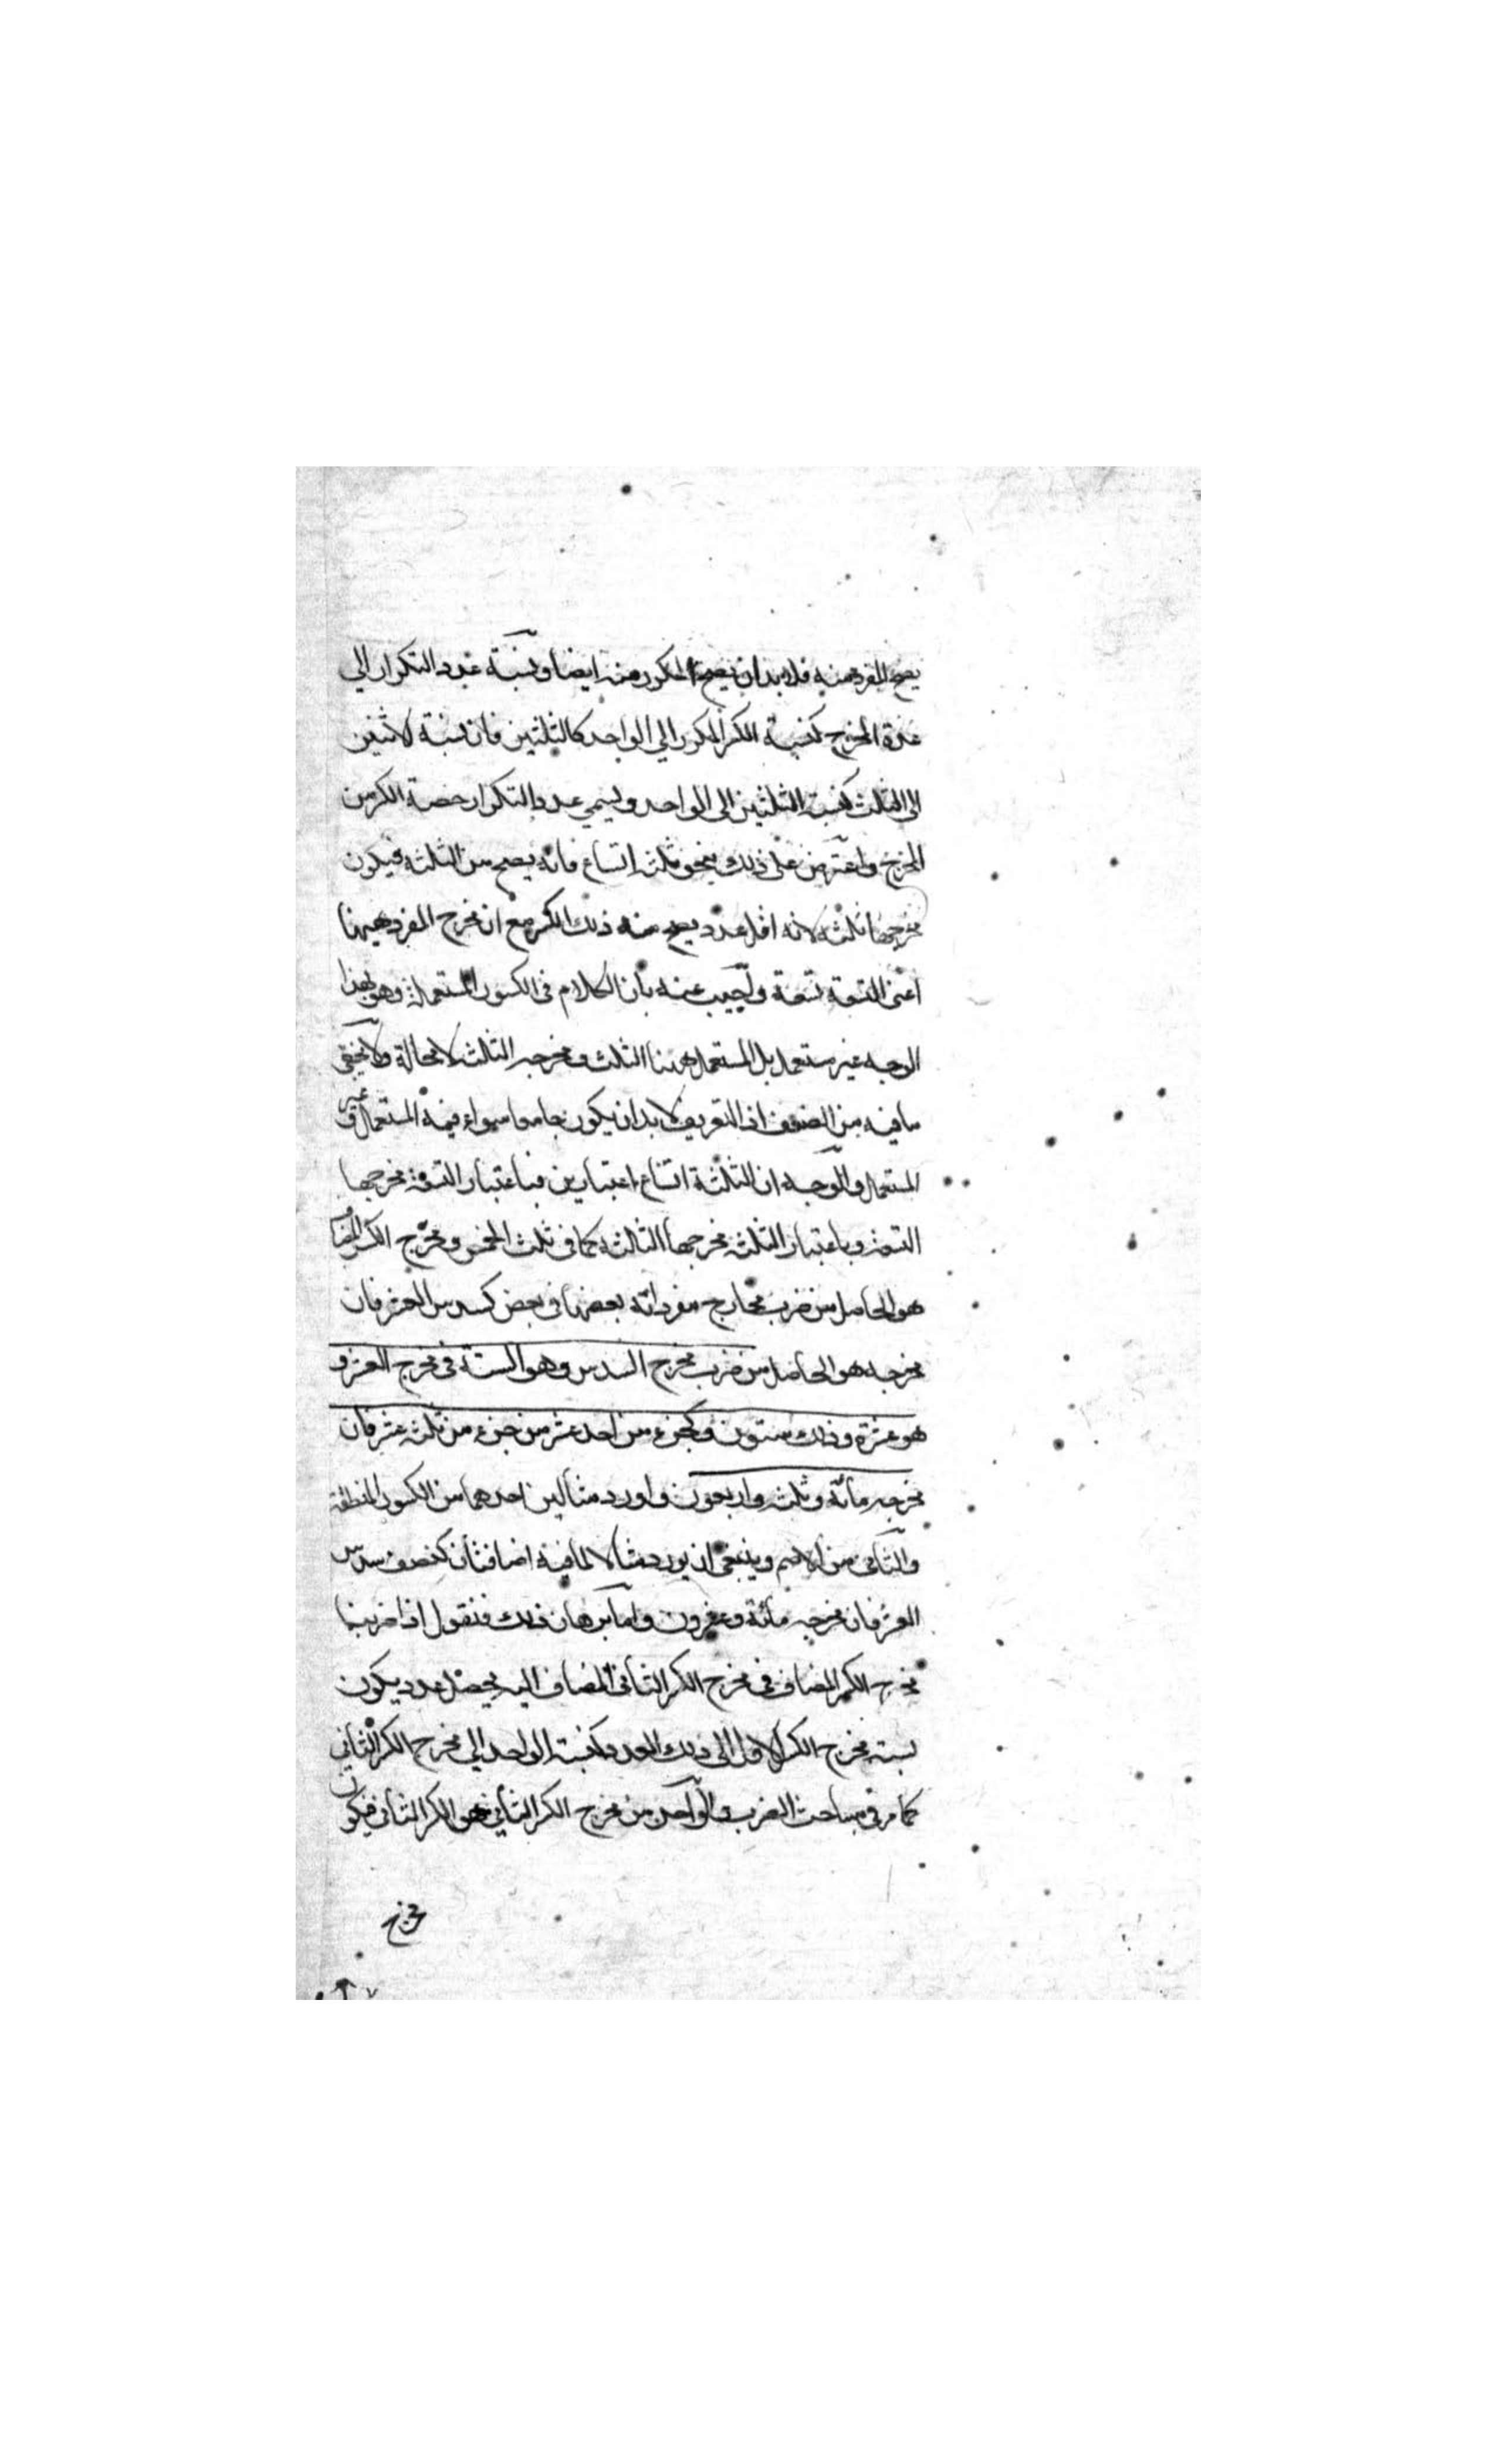 يصح المفرد منه فلا بد ان يصح المكرر منه ايضا ونسبة عدد التكرار الي
عدة المخرج كنسبة الكسر المكرر الي الواحد كالثلثين فان نسبة الاثنين
الى الثلث كنسبة الثلثين الى الواحد ويسمي عدد التكرار حصة الكسر من
المخرج واعترض على ذلك بنحو ثلثة اتساع فانه يصح من الثلثة فيكون
مخرجها ثلثة لانه اقل عدد يصح منه ذلك الكسر مع ان مخرج المفرد ههنا
اعنى التسعة تسعة واجيب عنه بان الكلام فى الكسور المستعملة وهو بهذا
الوجه غير مستعمل بل المستعمل ههنا الثلث ومخرجه الثلث لا محالة ولا يخفى
ما فيه من الضعف اذ التعريف لا بد ان يكون جامعا سواء فيه المستعمل وغير
المستعمل والوجه ان الثلثة اتساع اعتبارين فباعتبار التسعة مخرجها
التسعة وباعتبار الثلثة مخرجها الثالثة كما فى ثلث الخمس ومخرج الكسر المضاف
هو الحاصل من ضرب مخارج مفرداته بعضها فى بعض كسدس العشر فان
مخرجه هو الحاصل من ضرب مخرج السدس وهو الستة فى مخرج العشر و
هو عشرة وذلك ستون وكجزء من احد عشر من جزء من ثلثة عشر فان
مخرجه مائة وثلثة واربعون واورد مثالين احدهما من الكسور المنطقة
والثانى من الاصم وينبغى ان يورد مثالا لما فيه اضافتان كنصف سدس
العشر فان مخرجه مائة وعشرون واما برهان ذلك فنقول اذا ضربنا
مخرج الكسر المضاف فى مخرج الكسر الثانى المضاف اليه يحصل عدد يكون
نسبته مخرج الكسر الاول الى ذلك العدد كنسبة الواحد الي مخرج الكسر الثاني
كما مر فى مباحث الضرب والواحد من مخرج الكسر الثاني هو الكسر الثانى فيكون
مخرج